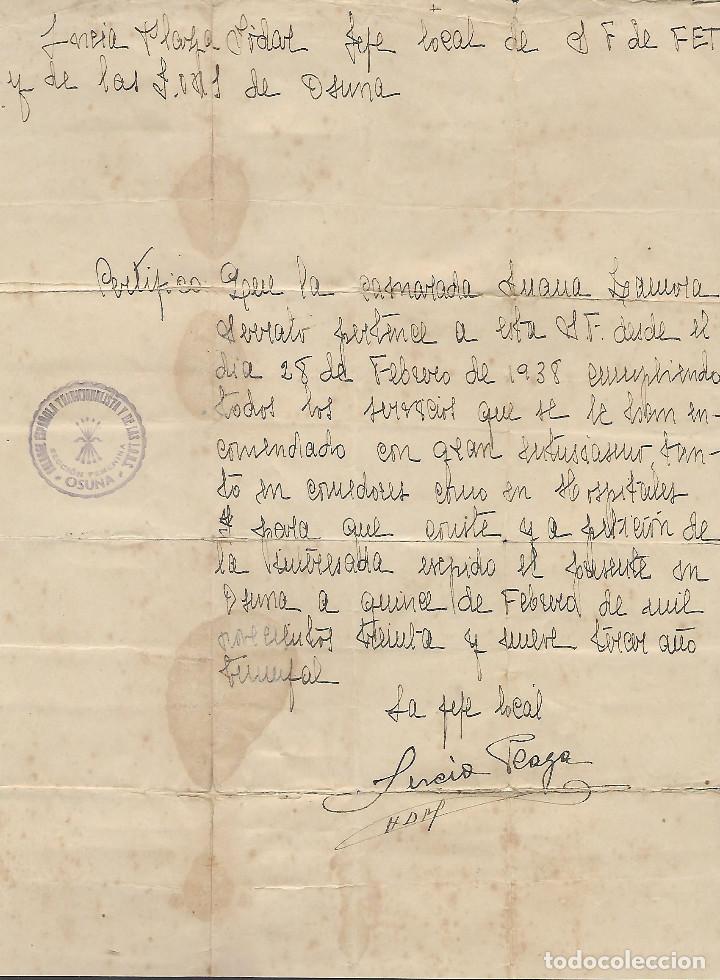 Lucia Plaza Todar Jefe local de S F de FET
y de las J.ONS de Osuna
Certifico Que la camarada Juana Zamora
Serrato pertence a esta S F. desde el
dia 28 de Febrero de 1938 cumpliendo
todos los servicios que se le han en-
comendado con gran entusiasmo, tan-
to en comedores como en Hospitales
para que conste y a petición de
la interesada expido el presente en
Osuna a quince de Febrero de mil
novecientos treinta y nueve tercer año
triunfal
La jefe local
Lucia Plaza
FALANGE ESPAÑOLA TRADICIONALISTA Y DE LAS J.O.N.S
SECCIÓN FEMENINA
OSUNA
todocoleccion